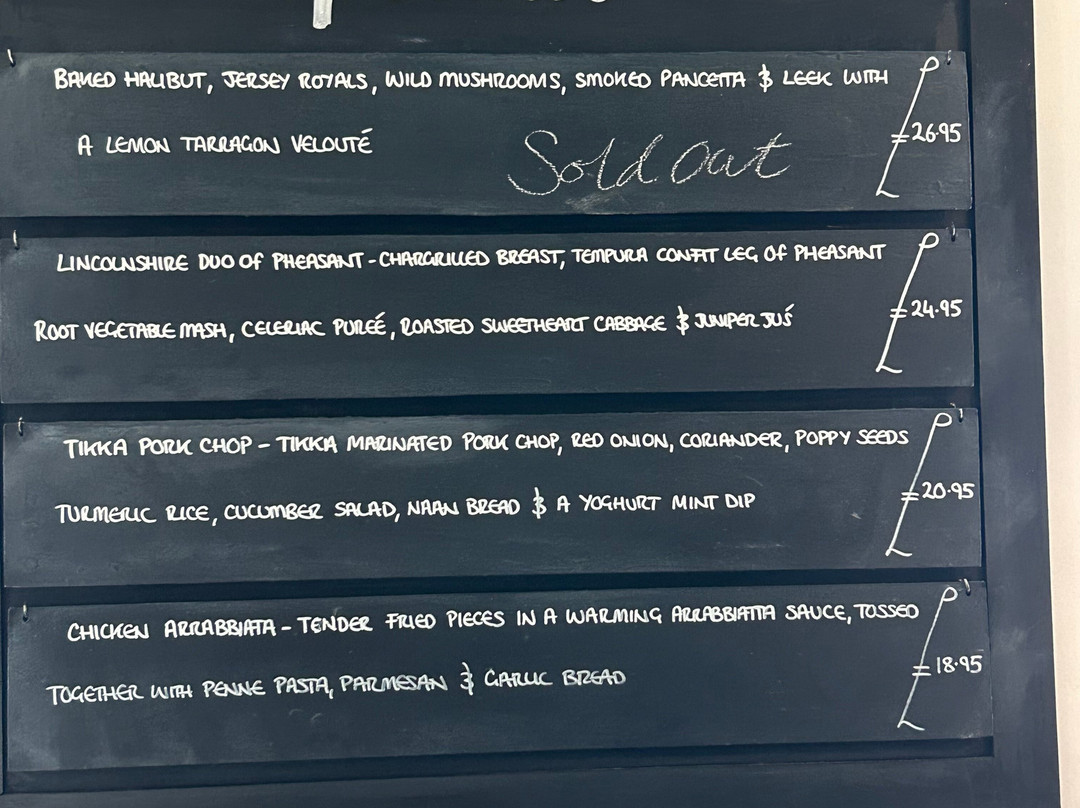 BAKED HALIBUT, JERSEY ROYALS, WILD MUSHROOMS, SMOKED PANCETTA & LEEK WITH
A LEMON TARRAGON VELOUTÉ
Sold Out
£26.95
LINCOLNSHIRE DUO OF PHEASANT - CHARGRILLED BREAST, TEMPURA CONFIT LEG OF PHEASANT
ROOT VEGETABLE MASH, CELERIAC PUREÉ, ROASTED SWEETHEART CABBAGE & JUNIPER JUŚ
£24.95
TIKKA PORK CHOP - TIKKA MARINATED PORK CHOP, RED ONION, CORIANDER, POPPY SEEDS
TURMERIC RICE, CUCUMBER SALAD, NAAN BREAD & A YOGHURT MINT DIP
£20.95
CHICKEN ARRABBIATA - TENDER FRIED PIECES IN A WARMING ARRABBIATTA SAUCE, TOSSED
TOGETHER WITH PENNE PASTA, PARMESAN & GARLIC BREAD
£18.95